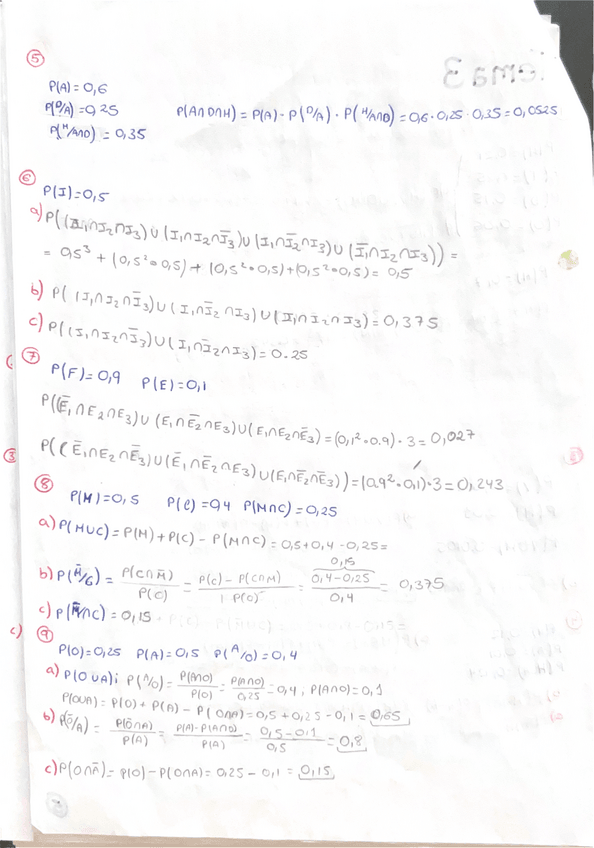 Tema 3
⑤
P(A) = 0,6
P(D/A) = 0,25 P(A∩D∩H) = P(A) · P(D/A) · P(H/A∩D) = 0,6 · 0,25 · 0,35 = 0,0525
P(H/A∩D) = 0,35
⑥
P(I) = 0,5
a) P((I₁∩I₂∩I₃)∪(I₁∩I₂∩I̅₃)∪(I₁∩I̅₂∩I₃)∪(I̅₁∩I₂∩I₃)) =
= 0,5³ + (0,5² · 0,5) + (0,5² · 0,5) + (0,5² · 0,5) = 0,5
b) P((I₁∩I₂∩I̅₃)∪(I₁∩I̅₂∩I₃)∪(I₁∩I₂∩I₃) = 0,375
c) P((I₁∩I₂∩I̅₃)∪(I₁∩I̅₂∩I₃) = 0.25
⑦
P(F) = 0,9 P(E) = 0,1
P((E̅₁∩E₂∩E₃)∪(E₁∩E̅₂∩E₃)∪(E₁∩E₂∩E̅₃) = (0,1² · 0.9) · 3 = 0,027
P((E̅₁∩E₂∩E̅₃)∪(E̅₁∩E̅₂∩E₃)∪(E₁∩E̅₂∩E̅₃)) = (0.9² · 0,1) · 3 = 0,243
⑧
P(M) = 0,5 P(C) = 0,4 P(M∩C) = 0,25
a) P(M∪C) = P(M) + P(C) - P(M∩C) = 0,5 + 0,4 - 0,25 =
b) P(M̅/C) = P(C∩M̅)/P(C) = P(C) - P(C∩M)/1-P(C) = 0,15 0,4-0,25/0,4 = 0,375
c) P(M̅∩C) = 0,15
c) ⑨
P(O) = 0,25 P(A) = 0,5 P(A/O) = 0,4
a) P(O∪A); P(A/O) = P(A∩O)/P(O) = P(A∩O)/0,25 = 0,4, P(A∩O) = 0,1
P(O∪A) = P(O) + P(A) - P(O∩A) = 0,5 + 0,25 - 0,1 = 0,65
b) P(O̅/A) = P(O̅∩A)/P(A) = P(A) - P(A∩O)/P(A) = 0,5 - 0,1/0,5 = 0,8
c) P(O∩A̅) = P(O) - P(O∩A) = 0,25 - 0,1 = 0,15